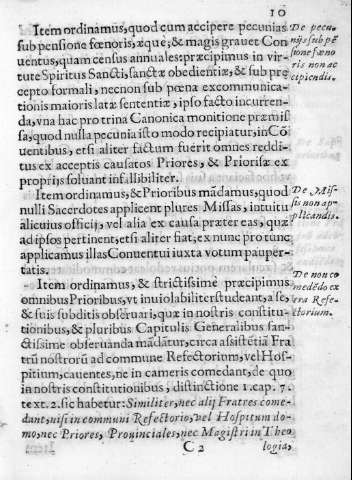 10
Item ordinamus, quod cum accipere pecunias
sub pensione fœnoris, æque, & magis grauet Con
uentus, quam census annales: præcipimus in vir-
tute Spiritus Sancti, sanctæ obedientiæ, & sub præ
cepto formali, necnon sub pœna excommunica-
tionis maioris latæ sententiæ, ipso facto incurren-
da, vna hac pro trina Canonica monitione præmis
sa, quod nulla pecunia isto modo recipiatur, in Cō
uentibus, etsi aliter factum fuerit omnes reddi-
tus ex acceptis causatos Priores, & Priorisæ ex
proprijs soluant infallibiliter.
De pecu-
nijs sub pē
sione fœno
ris non ac
cipiendis.
Item ordinamus, & Prioribus mādamus, quod
nulli Sacerdotes applicent plures Missas, intuitu
alicuius officij, vel alia ex causa præter eas, quæ
ad ipsos pertinent, etsi aliter fiat, ex nunc pro tunc
applicamus illas Conuentui iuxta votum pauper-
tatis.
De Mis-
sis non ap-
plicandis.
Item ordinamus, & strictissimè præcipimus
omnibus Prioribus, vt inuiolabiliter studeant, a se,
& suis subditis obseruari, quæ in nostris constitu-
tionibus, & pluribus Capitulis Generalibus san-
ctissime obseruanda mādātur, circa assistētiā Fra
trū nostrorū ad commune Refectorium, vel Hos-
pitium, cauentes, ne in cameris comedant, de quo
in nostris constitutionibus, distinctione 1. cap. 7.
text. 2. sic habetur: Similiter, nec alij Fratres come-
dant, nisi in communi Refectorio, vel Hospitum do-
mo, nec Priores, Prouinciales, nec Magistri in Theo
De non co
medēdo ex
tra Refe-
ctorium.
C 2
logia,